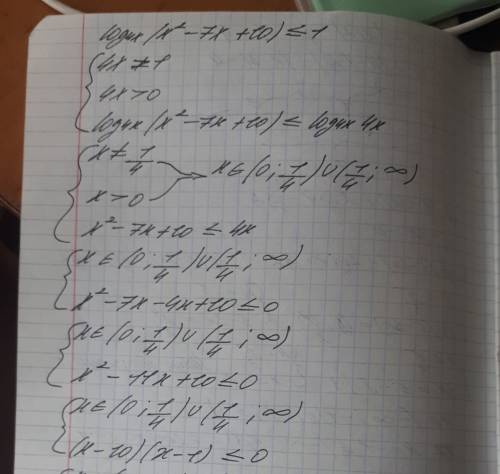 log₄ₓ(x² - 7x + 10) ≤ 1
4x ≠ 1
4x > 0
log₄ₓ(x² - 7x + 10) ≤ log₄ₓ 4x
x ≠ 1/4
x ∈ (0; 1/4) ∪ (1/4; ∞)
x > 0
x² - 7x + 10 ≤ 4x
x ∈ (0; 1/4) ∪ (1/4; ∞)
x² - 7x - 4x + 10 ≤ 0
x ∈ (0; 1/4) ∪ (1/4; ∞)
x² - 11x + 10 ≤ 0
x ∈ (0; 1/4) ∪ (1/4; ∞)
(x - 10)(x - 1) ≤ 0